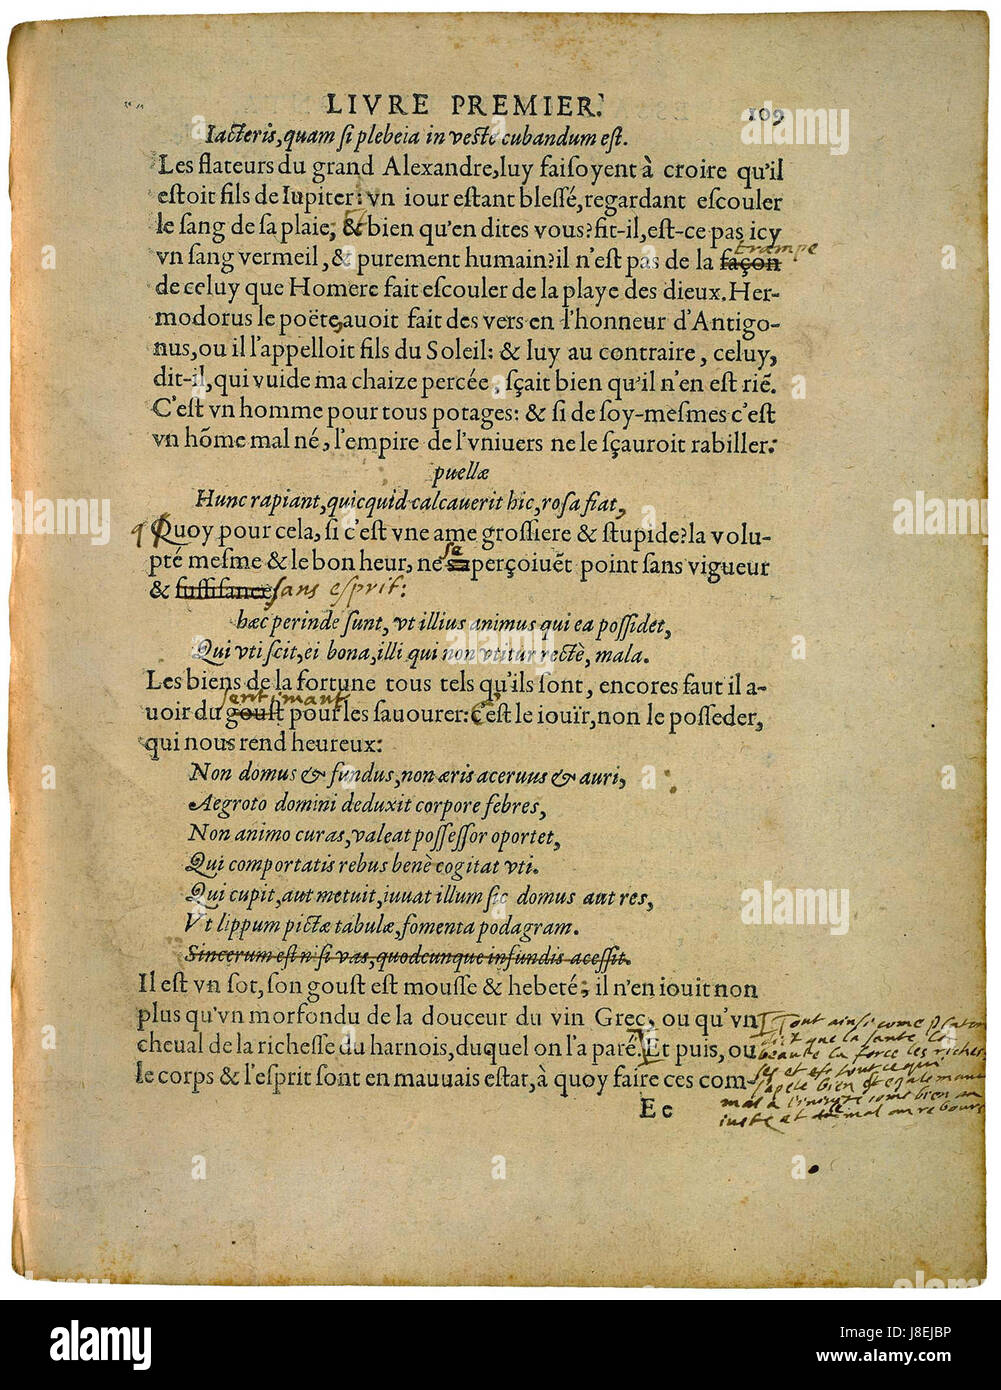 LIVRE PREMIER. 109
Iacteris, quam si plebeia in veste cubandum est.
Les flateurs du grand Alexandre, luy faisoyent à croire qu'il
estoit fils de Iupiter: vn iour estant blessé, regardant escouler
le sang de sa plaie, & bien qu'en dites vous? fit-il, est-ce pas icy
trampe
vn sang vermeil, & purement humain? il n'est pas de la façon
de celuy que Homere fait escouler de la playe des dieux. Her-
modorus le poëte, auoit fait des vers en l'honneur d'Antigo-
nus, ou il l'appelloit fils du Soleil: & luy au contraire, celuy,
dit-il, qui vuide ma chaize percée, sçait bien qu'il n'en est riẽ.
C'est vn homme pour tous potages: & si de soy-mesmes c'est
vn hõme mal né, l'empire de l'vniuers ne le sçauroit rabiller:
puellæ
Hunc rapiant, quicquid calcauerit hic, rosa fiat,
q Quoy pour cela, si c'est vne ame grossiere & stupide? la volu-
se
pté mesme & le bon heur, ne s'aperçoiuẽt point sans vigueur
& suffisance, sans esprit:
hæc perinde sunt, vt illius animus qui ea possidet,
Qui vti scit, ei bona, illi qui non vtitur rectè, mala.
Les biens de la fortune tous tels qu'ils sont, encores faut il a-
sentimant
uoir du goust pour les sauourer: C'est le iouïr, non le posseder,
qui nous rend heureux:
Non domus & fundus, non æris aceruus & auri,
Aegroto domini deduxit corpore febres,
Non animo curas, valeat possessor oportet,
Qui comportatis rebus benè cogitat vti.
Qui cupit, aut metuit, iuuat illum sic domus aut res,
Vt lippum pictæ tabulæ, fomenta podagram.
Sincerum est nisi vas, quodcunque infundis acessit.
Il est vn sot, son goust est mousse & hebeté; il n'en iouit non
plus qu'vn morfondu de la douceur du vin Grec, ou qu'vn
cheual de la richesse du harnois, duquel on l'a paré. Et puis, ou
le corps & l'esprit sont en mauuais estat, à quoy faire ces com-
Ee
Tout ainsi come Platon
dict que la sante la
beaute la force les riches
ses et tout ce qui
s'apele bien est egalemant
mal a l'iniuste come bien au
iuste et le mal au rebours
alamy
Image ID: J8EJBP
www.alamy.com